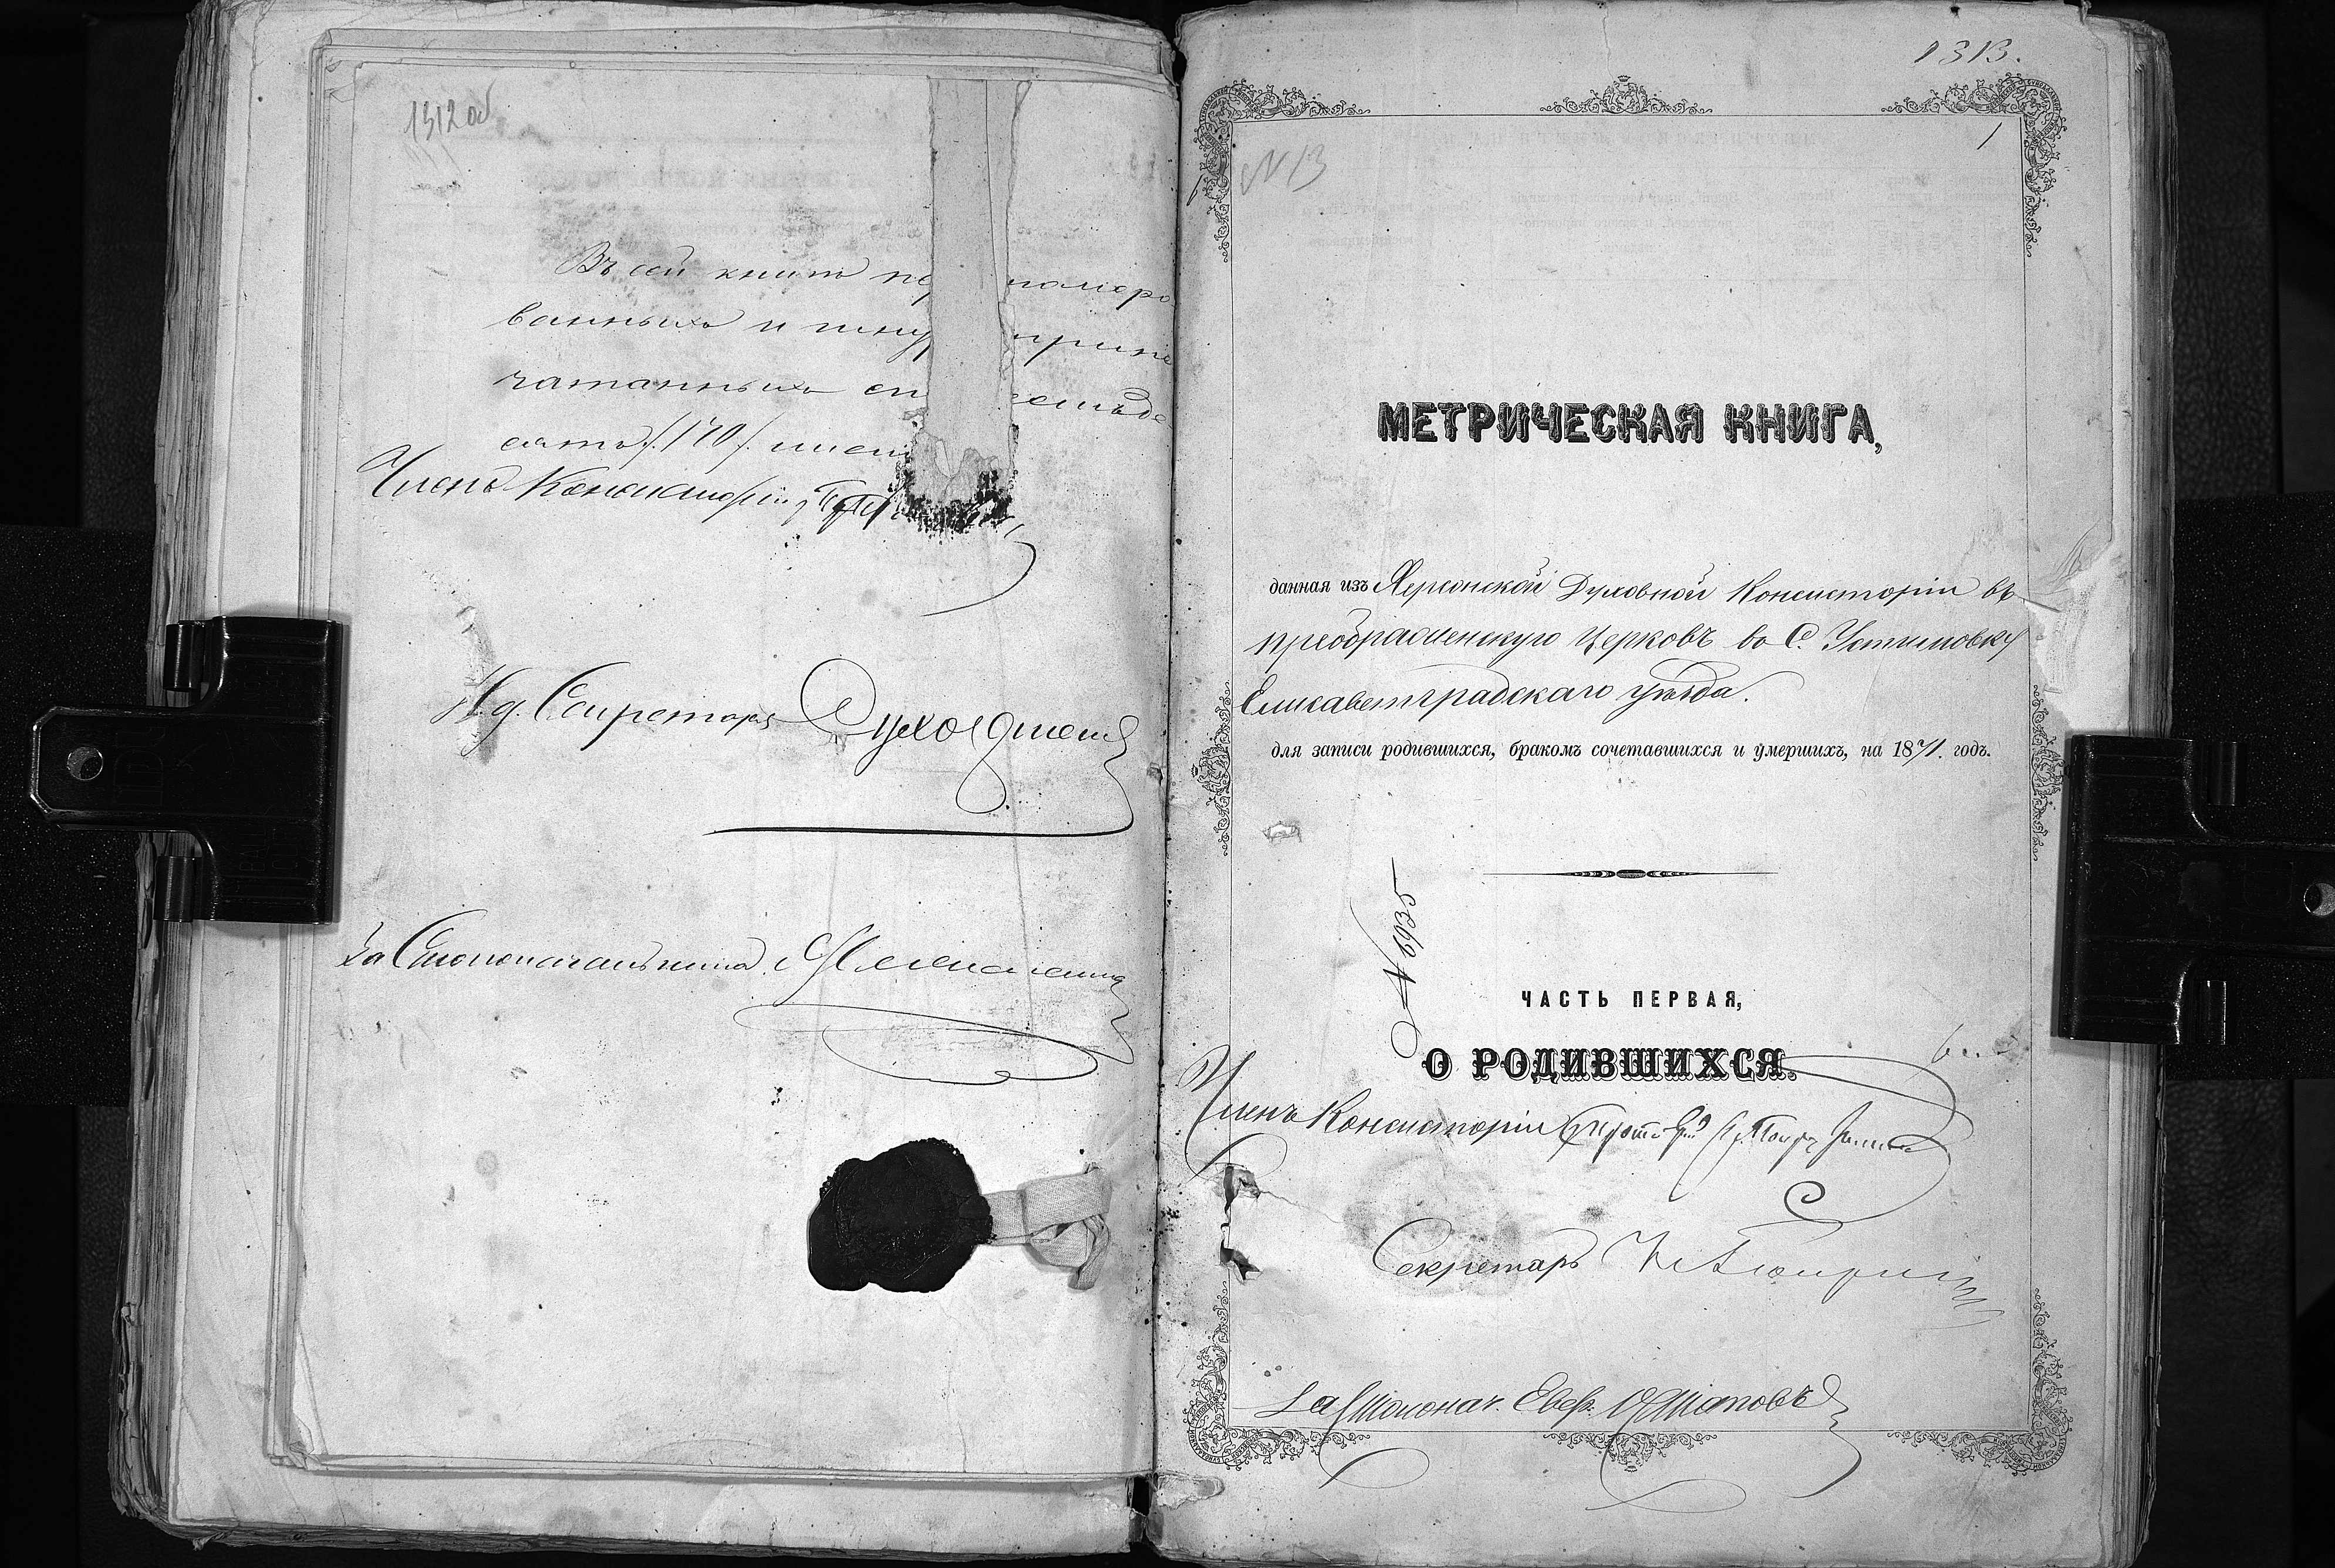 1312 об
Въ сей книгѣ пе номеро
ванныхъ и шну припе
чатанныхъ ст семьде
сятъ /170/ лист
Членъ Консисторіи
И. д. Секретаря
За Столоначальника
1313.
1
N 13
МЕТРИЧЕСКАЯ КНИГА,
данная изъ Херсонской Духовной Консисторіи въ
Преображенскую Церковь во С. Устимовку
Елисаветградскаго уѣзда.
для записи родившихся, бракомъ сочетавшихся и умершихъ, на 1871. годъ.
N 6935
ЧАСТЬ ПЕРВАЯ,
О РОДИВШИХСЯ.
Членъ Консисторіи
Секретарь
За Столонач.